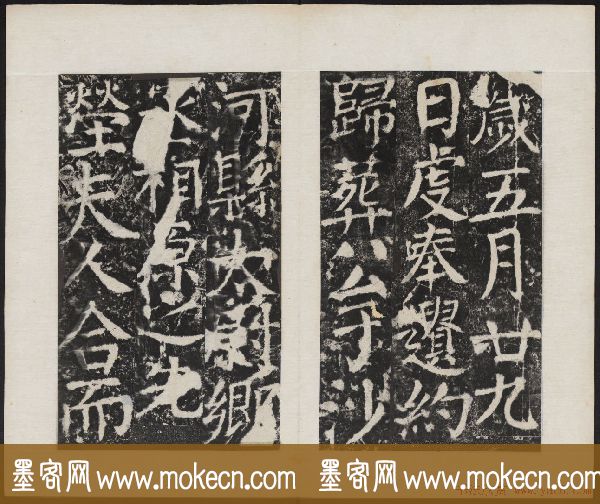 歲五月廿九
日虔奉遺約
歸葬公于沙
河縣太尉鄉
丞相原之先
塋夫人合而
墨客网 www.mokecn.com
墨客网 www.mokecn.com